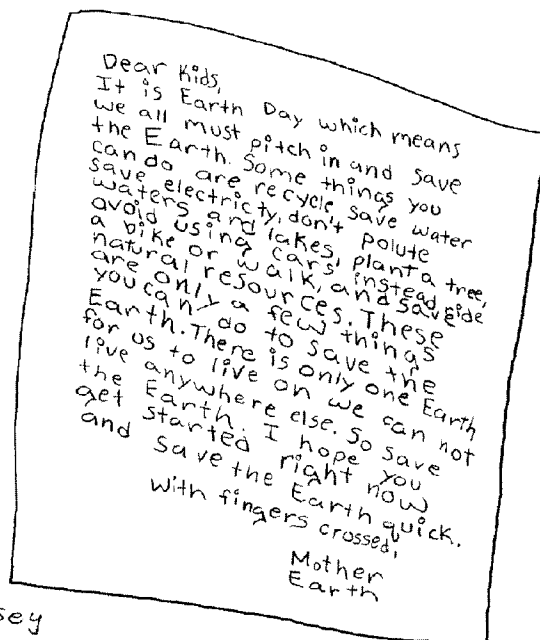 Dear Kids,
It is Earth Day which means
we all must pitch in and save
the Earth. Some things you
can do are recycle, save water
save electricty, don't polute
waters and lakes, plant a tree,
avoid using cars instead ride
a bike or walk, and save
natural resources. These
are only a few things
you can do to save the
Earth. There is only one Earth
for us to live on we can not
live anywhere else. So save
the Earth. I hope you
get started right now
and save the Earth quick.
With fingers crossed,
Mother
Earth
sey